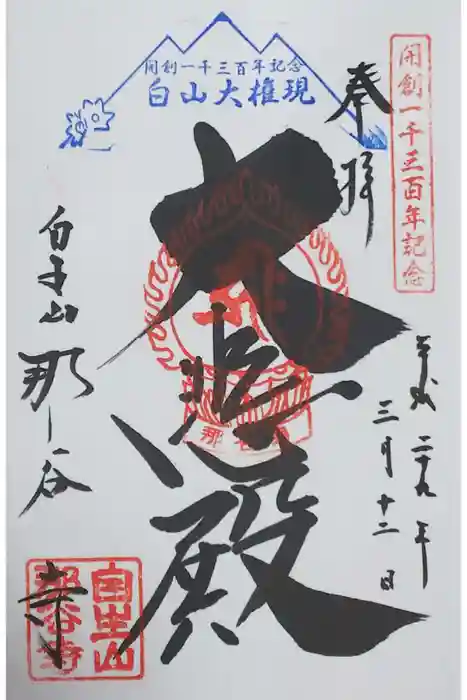 開創一千三百年記念
白山大権現
開創一千三百年記念
奉拝
平成二十九年
三月十二日
大悲殿
那谷寺
自生山
那谷寺
自生山
那谷寺